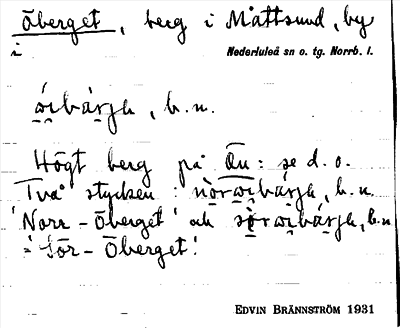 Öberget, berg i Måttsund, by
i Nederluleå sn o. tg. Norrb. l.
b.n.
Högt berg på Ön: se d. o.
Två stycken: b.n.
'Norr-Öberget' och b.n
'Sör-Öberget'.
EDVIN BRÄNNSTRÖM 1931